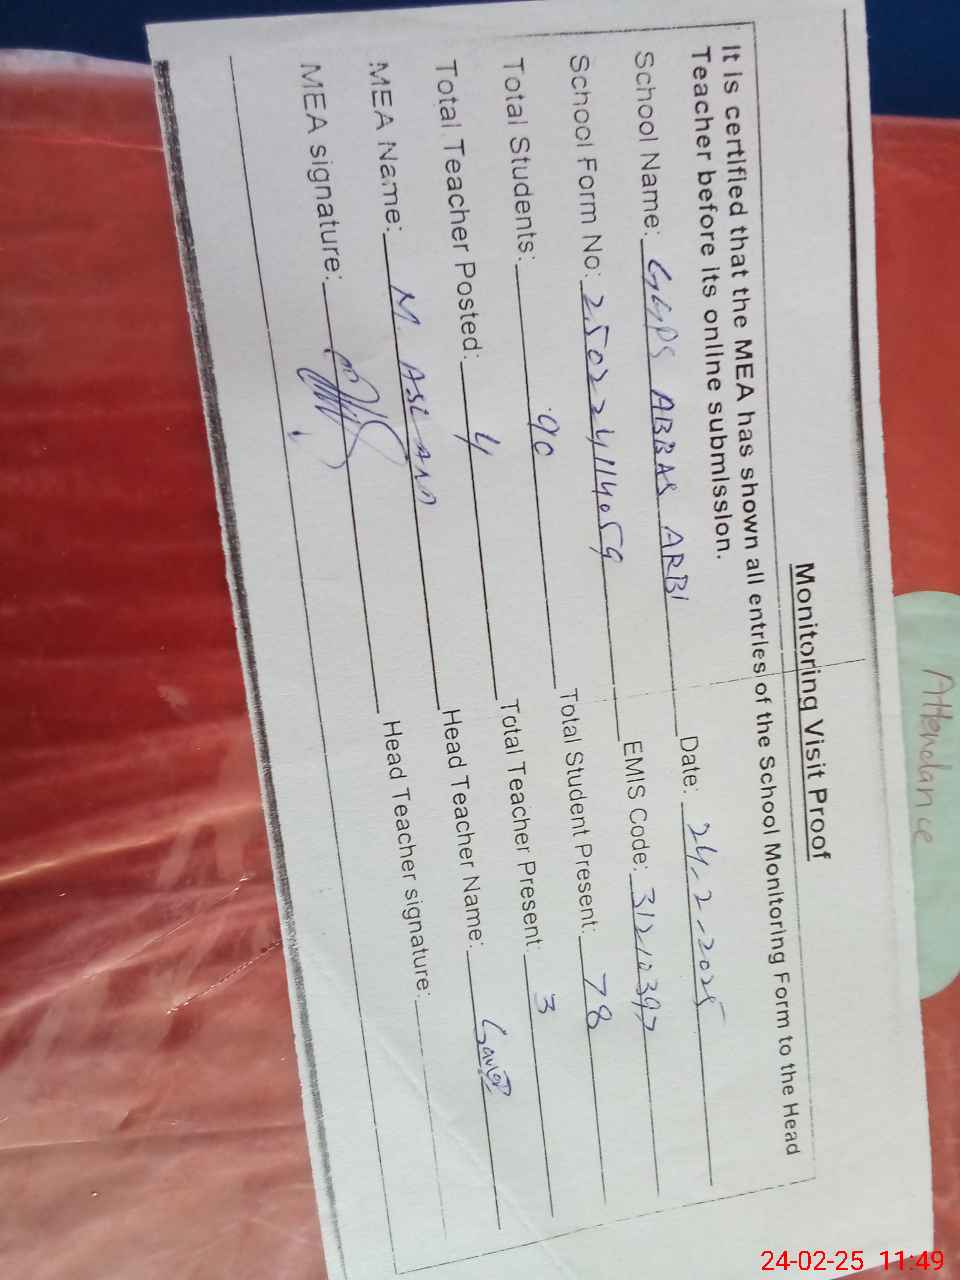 Attendance
Monitoring Visit Proof
It is certified that the MEA has shown all entries of the School Monitoring Form to the Head
Teacher before its online submission.
School Name: GGPS ABBAS ARBI Date: 24-2-2025
School Form No: 250224114059 EMIS Code: 31210397
Total Students: 90 Total Student Present: 78
Total Teacher Posted: 4 Total Teacher Present: 3
MEA Name: M. ASLAM Head Teacher Name:
MEA signature: Head Teacher signature:
24-02-25 11:49